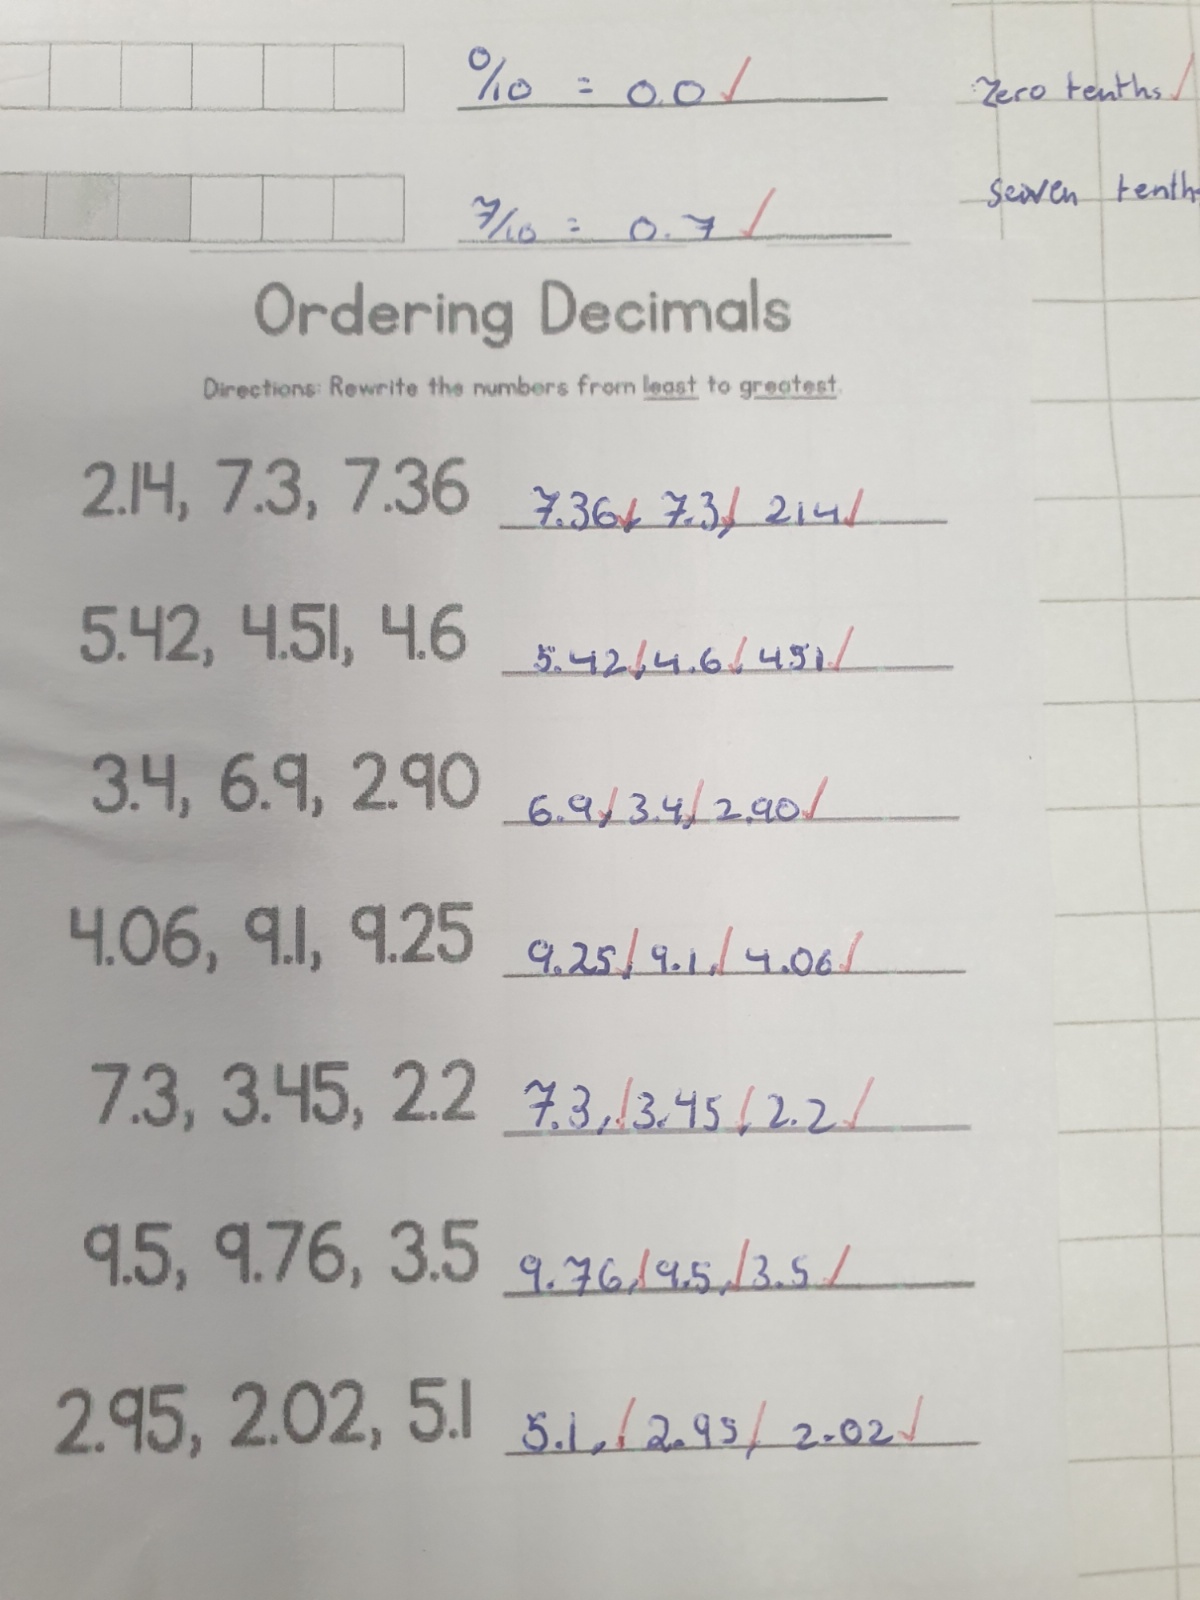 0/10 = 0.0
Zero tenths
7/10 = 0.7
seven tenths
Ordering Decimals
Directions: Rewrite the numbers from least to greatest.
2.14, 7.3, 7.36 7.36, 7.3, 2.14
5.42, 4.51, 4.6 5.42, 4.6, 4.51
3.4, 6.9, 2.90 6.9, 3.4, 2.90
4.06, 9.1, 9.25 9.25, 9.1, 4.06
7.3, 3.45, 2.2 7.3, 3.45, 2.2
9.5, 9.76, 3.5 9.76, 9.5, 3.5
2.95, 2.02, 5.1 5.1, 2.95, 2.02